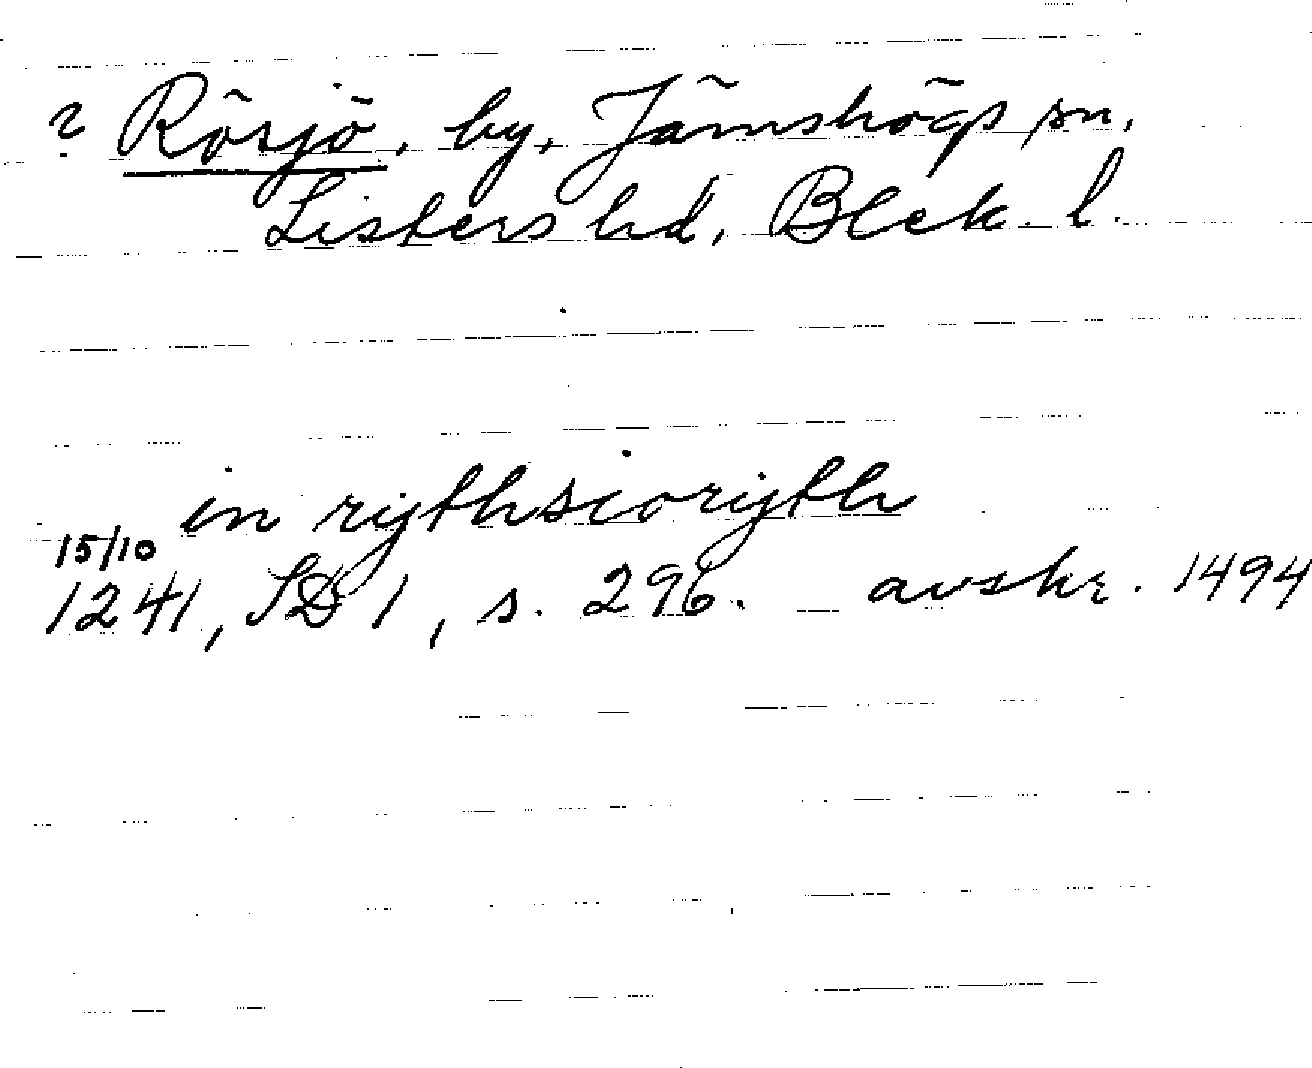 ? Rösjö, by, Jämshögs sn,
Listers hd, Blek. l.
in rythsioryth
15/10
1241, SD 1, s. 296. avskr. 1494